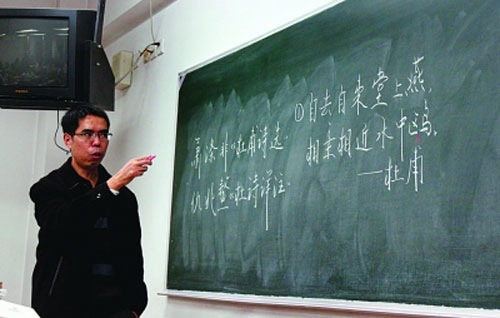 萧涤非《杜甫诗选》
仇兆鳌《杜诗详注》
①自去自来堂上燕，
相亲相近水中鸥。
——杜甫